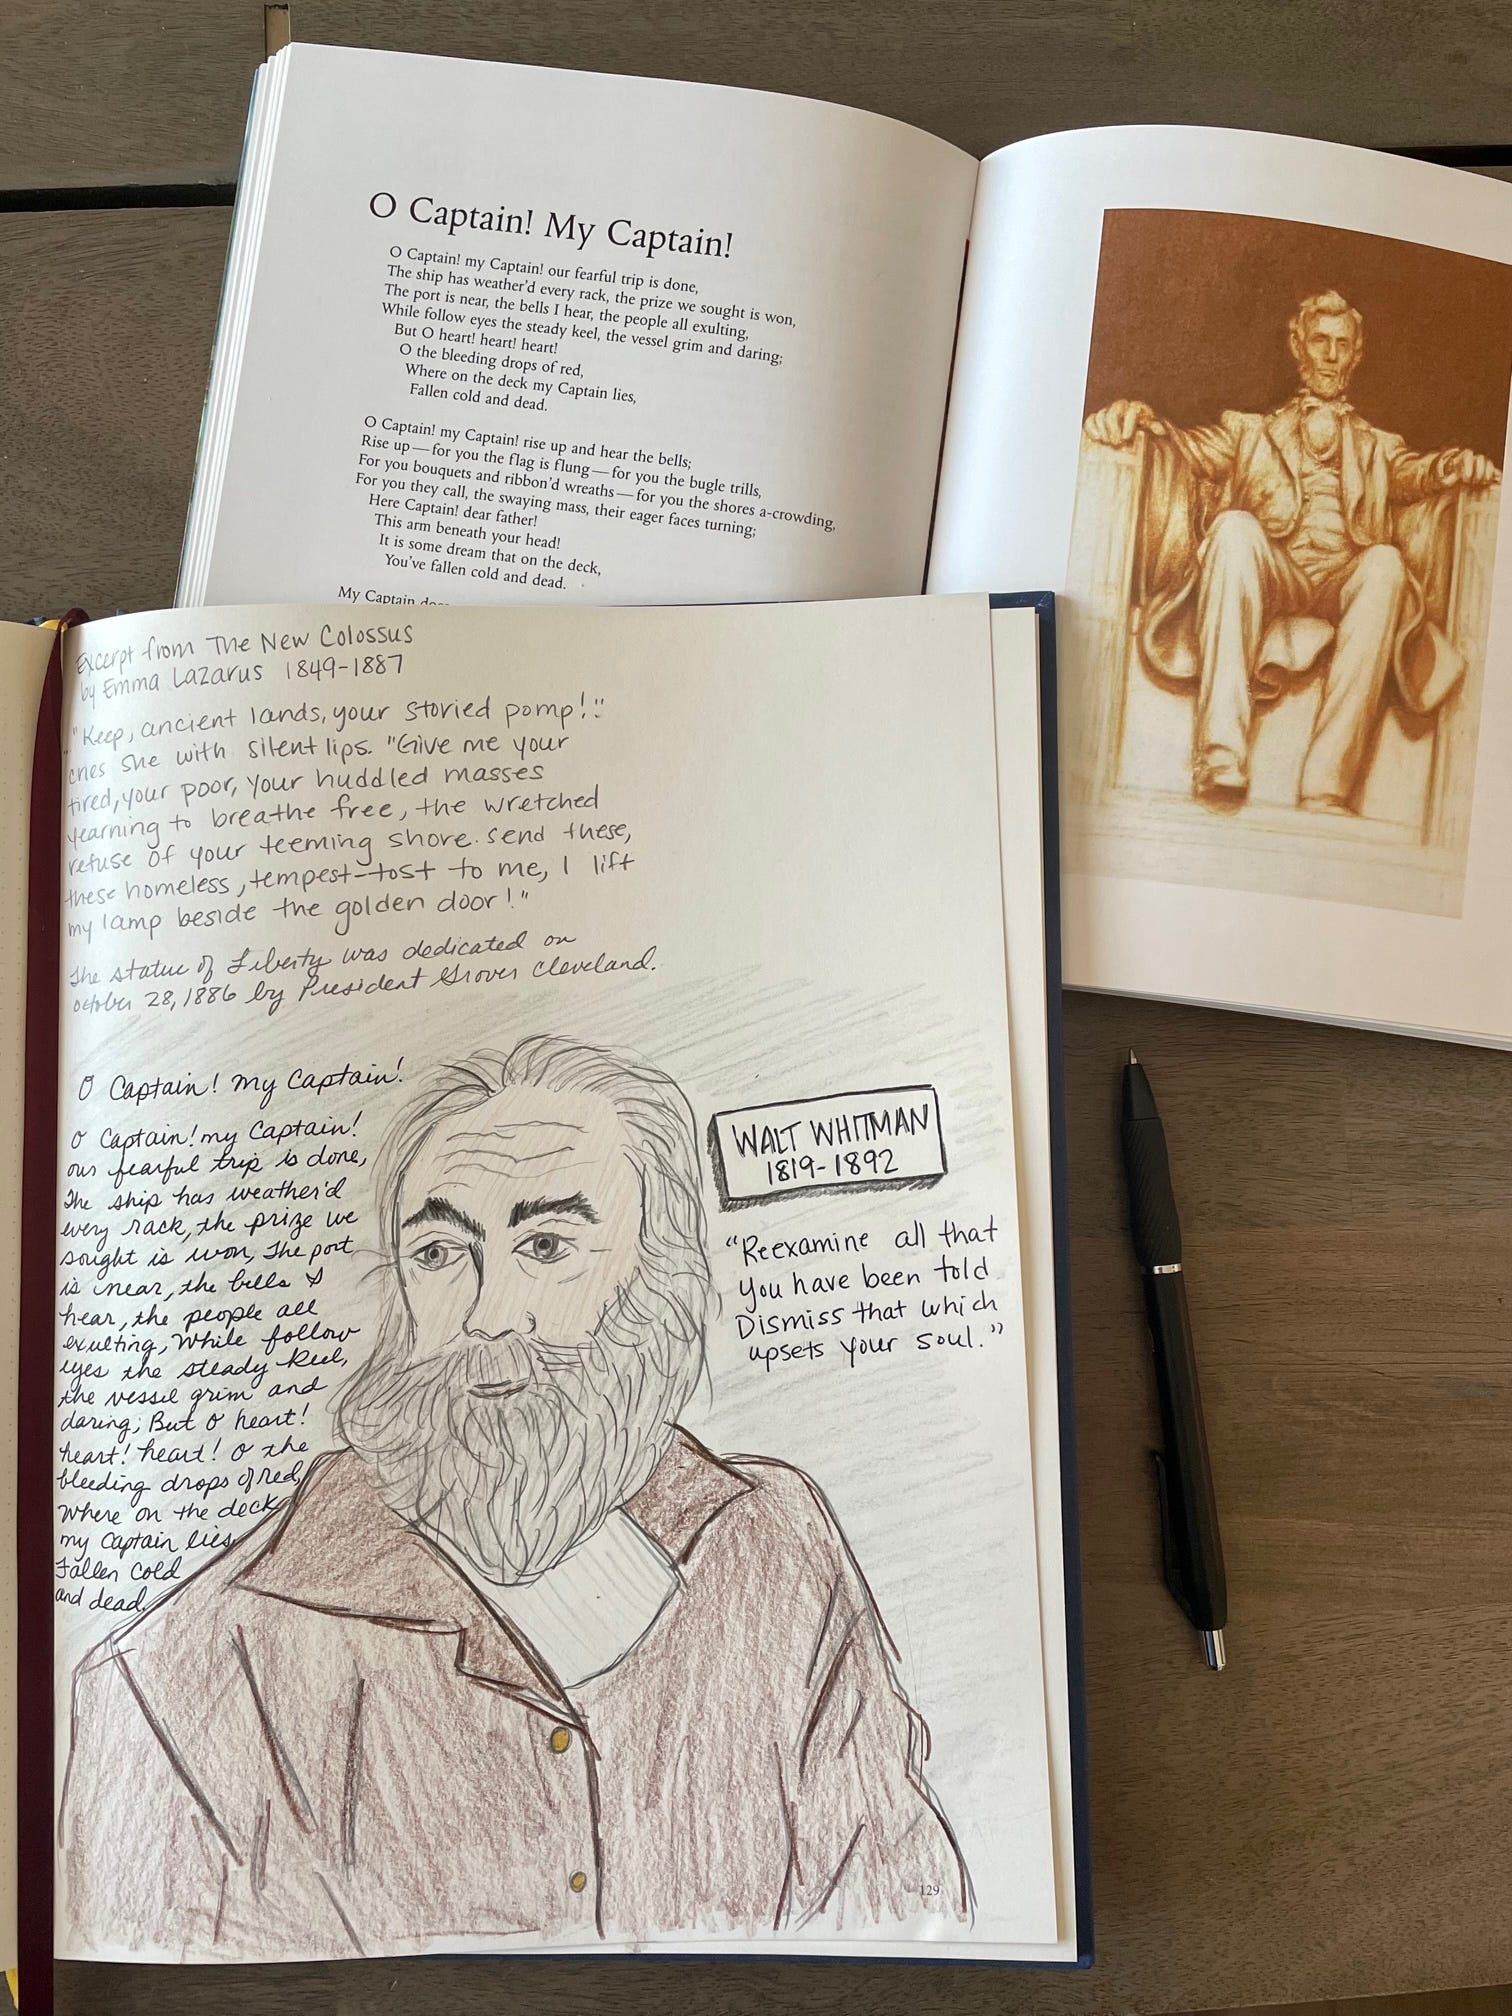 O Captain! My Captain!
O Captain! my Captain! our fearful trip is done,
The ship has weather'd every rack, the prize we sought is won,
The port is near, the bells I hear, the people all exulting,
While follow eyes the steady keel, the vessel grim and daring;
But O heart! heart! heart!
O the bleeding drops of red,
Where on the deck my Captain lies,
Fallen cold and dead.
O Captain! my Captain! rise up and hear the bells;
Rise up—for you the flag is flung—for you the bugle trills,
For you bouquets and ribbon'd wreaths—for you the shores a-crowding,
For you they call, the swaying mass, their eager faces turning;
Here Captain! dear father!
This arm beneath your head!
It is some dream that on the deck,
You've fallen cold and dead.
My Captain
Excerpt from The New Colossus
by Emma Lazarus 1849-1887
"Keep, ancient lands, your storied pomp!"
cries she with silent lips. "Give me your
tired, your poor, your huddled masses
yearning to breathe free, the wretched
refuse of your teeming shore. Send these,
these homeless, tempest-tost to me, I lift
my lamp beside the golden door!"
The statue of Liberty was dedicated on
October 28, 1886 by President Grover Cleveland.
O Captain! My Captain!
O Captain! my Captain!
our fearful trip is done,
The ship has weather'd
every rack, the prize we
sought is won, The port
is near, the bells I
hear, the people all
exulting, While follow
eyes the steady keel,
the vessel grim and
daring; But O heart!
heart! heart! O the
bleeding drops of red,
Where on the deck
my Captain lies,
Fallen cold
and dead.
WALT WHITMAN
1819-1892
"Reexamine all that
you have been told
Dismiss that which
upsets your soul."
129